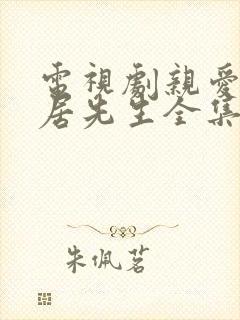 電視劇親愛
居先生全集
朱佩茗